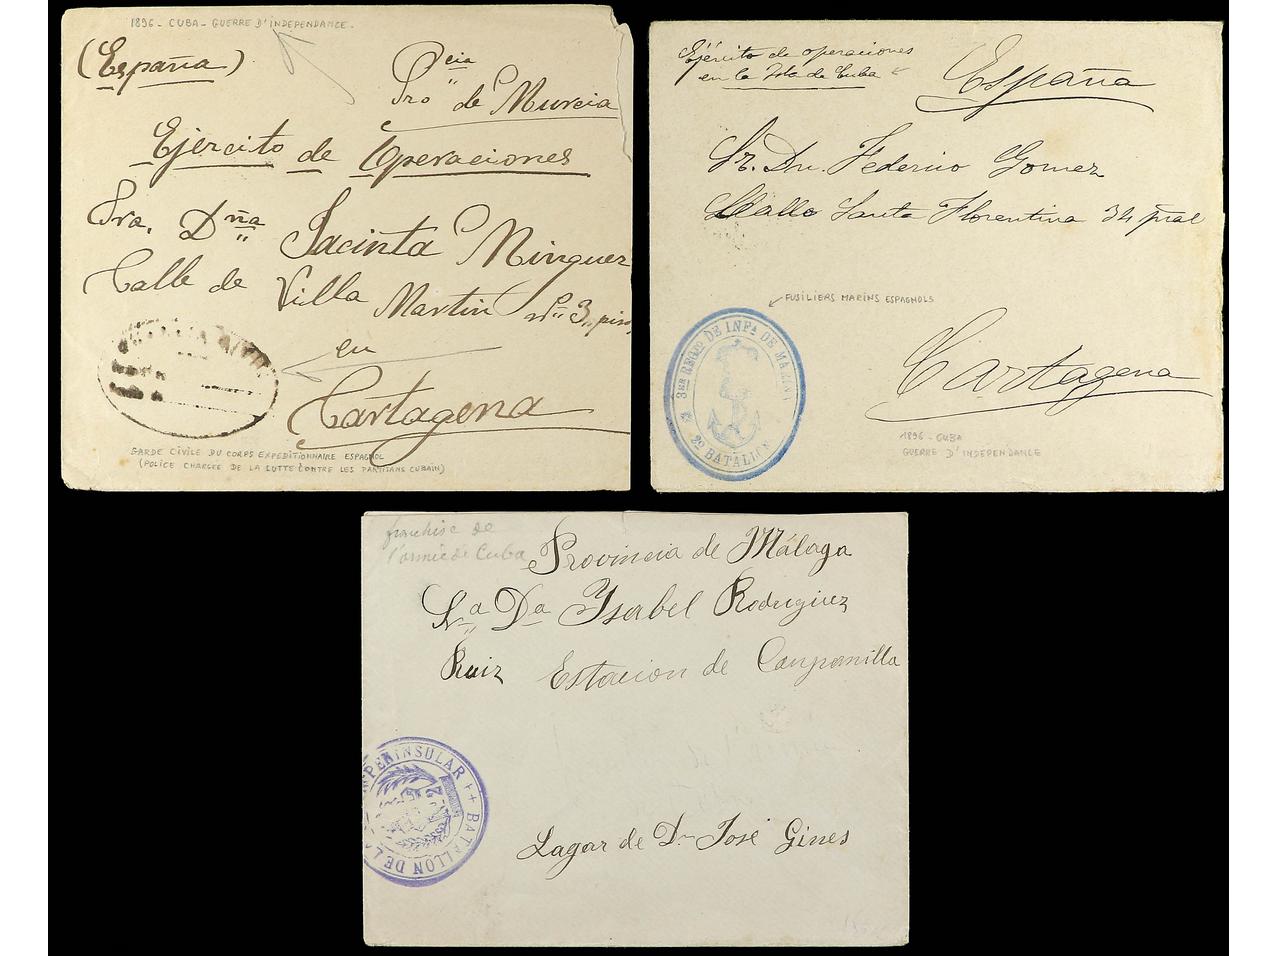 1896 - CUBA - GUERRE D'INDEPENDANCE.
(España)
Procia de Murcia
Ejército de Operaciones
Sra. Dña Jacinta Minguez
Calle de Villa Martin nº 3, piso,
en
Cartagena
GARDE CIVILE DU CORPS EXPEDITIONNAIRE ESPAGNOL
(POLICE CHARGÉE DE LA LUTTE CONTRE LES PARTISANS CUBAIN)
Ejército de operaciones
en la Isla de Cuba
España
Sr. Dn. Federico Gomez
Calle Santa Florentina 34 pral
FUSILIERS MARINS ESPAGNOLS
3ER REGTO DE INFA DE MARINA
2º BATALLON
Cartagena
1896 - CUBA
GUERRE D'INDEPENDANCE
franchise de
l'armée de Cuba
Provincia de Málaga
Sra Da Ysabel Rodriguez
Ruiz Estacion de Campanilla
PENINSULAR ++ BATALLON DE
Lagar de Dn José Gines